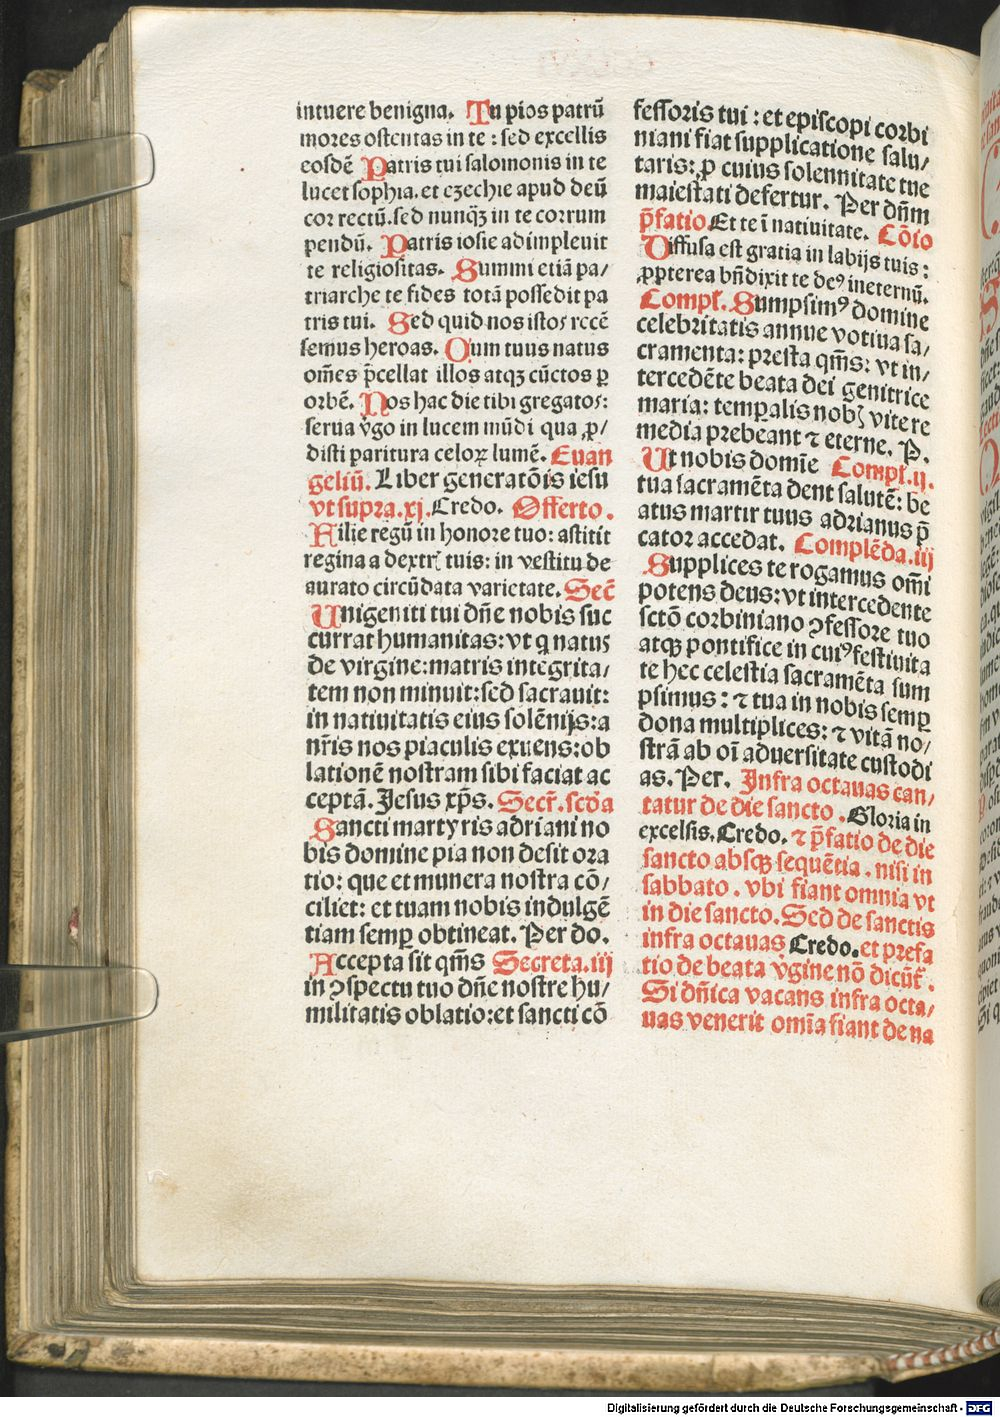 intuere benigna. Tu pios patrū
mores ostentas in te : sed excellis
eosdē Patris tui salomonis in te
lucet sophia. et ezechie apud deū
cor rectū. sed nunqꝫ in te corrum
pendū. Patris iosie adimpleuit
te religiositas. Summi etiā pa/
triarche te fides totā possedit pa
tris tui. Sed quid nos istos rece̅
semus heroas. Cum tuus natus
om̄es p̄cellat illos atqꝫ cūctos ꝑ
orbē. Nos hac die tibi gregatos:
serua v̄go in lucem mūdi qua ꝓ/
disti paritura celoꝝ lumē. Euan
geliū. Liber generatōis iesu
vt supra. xj. Credo. Offerto.
Filie regū in honore tuo: astitit
regina a dextr̄ tuis: in vestitu de
aurato circūdata varietate. Secr̄
Unigeniti tui dn̄e nobis suc
currat humanitas: vt q natus
de virgine: matris integrita/
tem non minuit: sed sacrauit:
in natiuitatis eius solēnijs: a
nr̄is nos piaculis exuens: ob
lationē nostram sibi faciat ac
ceptā. Jesus xp̄s. Secr̄. scd̄a
Sancti martyris adriani no
bis domine pia non desit ora
tio: que et munera nostra cō/
ciliet: et tuam nobis indulgē
tiam semꝑ obtineat. Per do.
Accepta sit qm̄s Secreta. iij
in ꝯspectu tuo dn̄e nostre hu/
militatis oblatio: et sancti cō
fessoris tui : et episcopi corbi
niani fiat supplicatione salu/
taris: ꝓ cuius solennitate tue
maiestati defertur. Per dn̄m
p̄fatio. Et te ī natiuitate. Cōio
Diffusa est gratia in labijs tuis :
ꝓpterea bn̄dixit te deꝰ ineternū.
Compl̄. Sumpsimꝰ domine
celebritatis annue votiua sa/
cramenta: presta qm̄s: vt in/
tercedēte beata dei genitrice
maria: temꝑalis nobꝫ vite re
media prebeant ⁊ eterne. P.
Ut nobis domīe Compl̄. ij.
tua sacramēta dent salutē: be
atus martir tuus adrianus p̄
cator accedat. Complēda. iij
Supplices te rogamus om̄i
potens deus: vt intercedente
sctō corbiniano ꝯfessore tuo
atqꝫ pontifice in cuiꝰ festiuita
te hec celestia sacramēta sum
psimus : ⁊ tua in nobis semꝑ
dona multiplices: ⁊ vitā no/
strā ab oī aduersitate custodi
as. Per. Infra octauas can/
tatur de die sancto . Gloria in
excelsis. Credo. ⁊ p̄fatio de die
sancto absqꝫ sequētia . nisi in
sabbato . vbi fiant omnia vt
in die sancto. Sed de sanctis
infra octauas Credo. et prefa
tio de beata v̄gine nō dicūt̄ .
Si dn̄ica vacans infra octa/
uas venerit omīa fiant de na
Digitalisierung gefördert durch die Deutsche Forschungsgemeinschaft - DFG